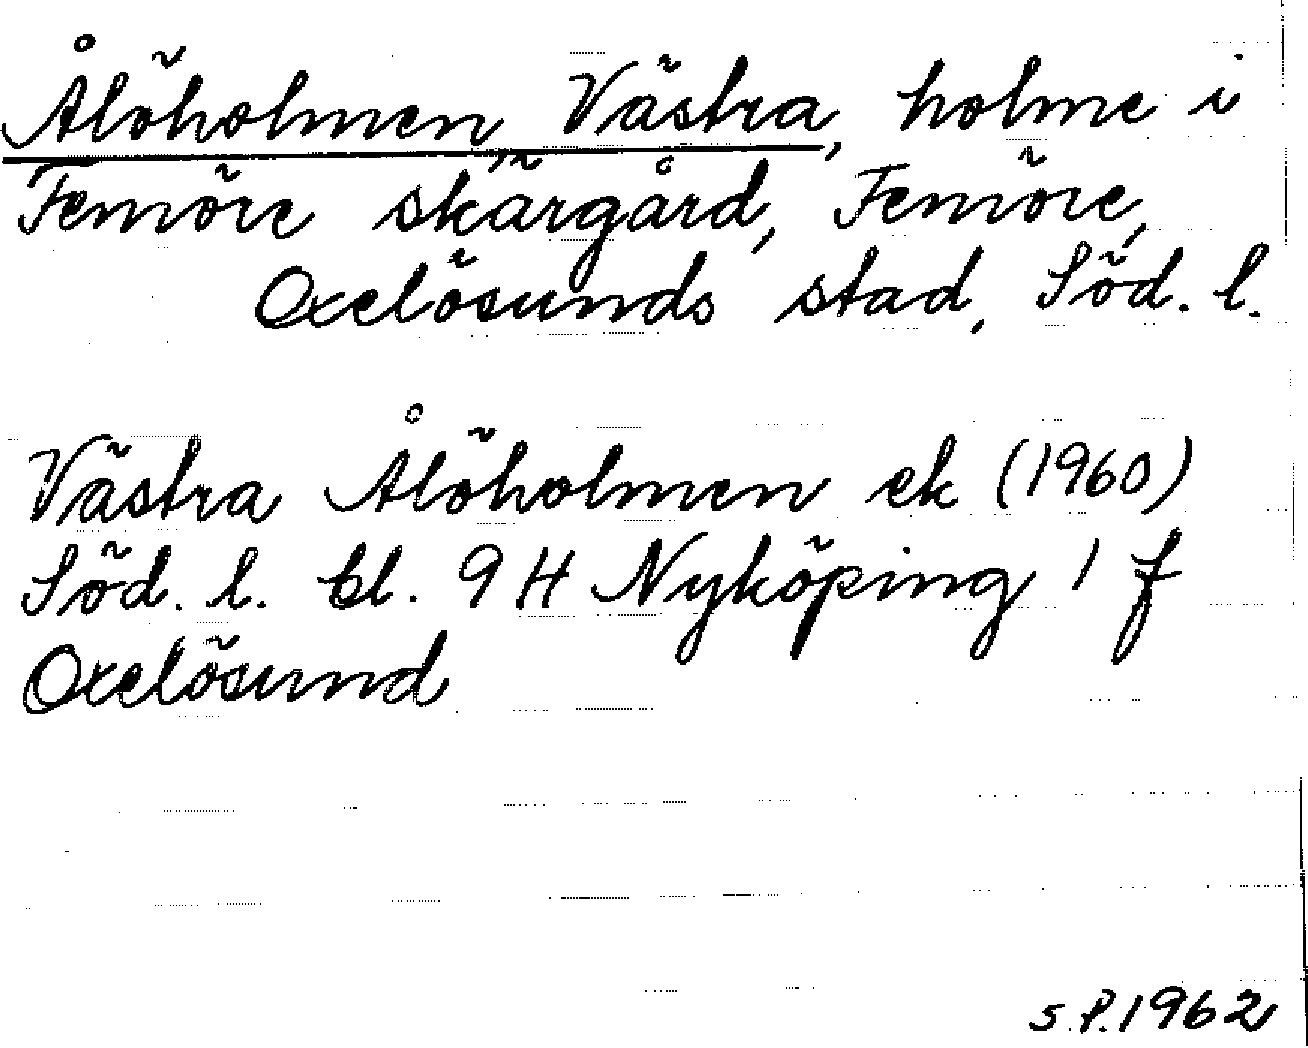 Ålöholmen, Västra, holme i
Femöre skärgård, Femöre,
Oxelösunds stad, Söd. l.
Västra Ålöholmen ek (1960)
Söd. l. bl. 9 H Nyköping 1 f
Oxelösund
S.P. 1962